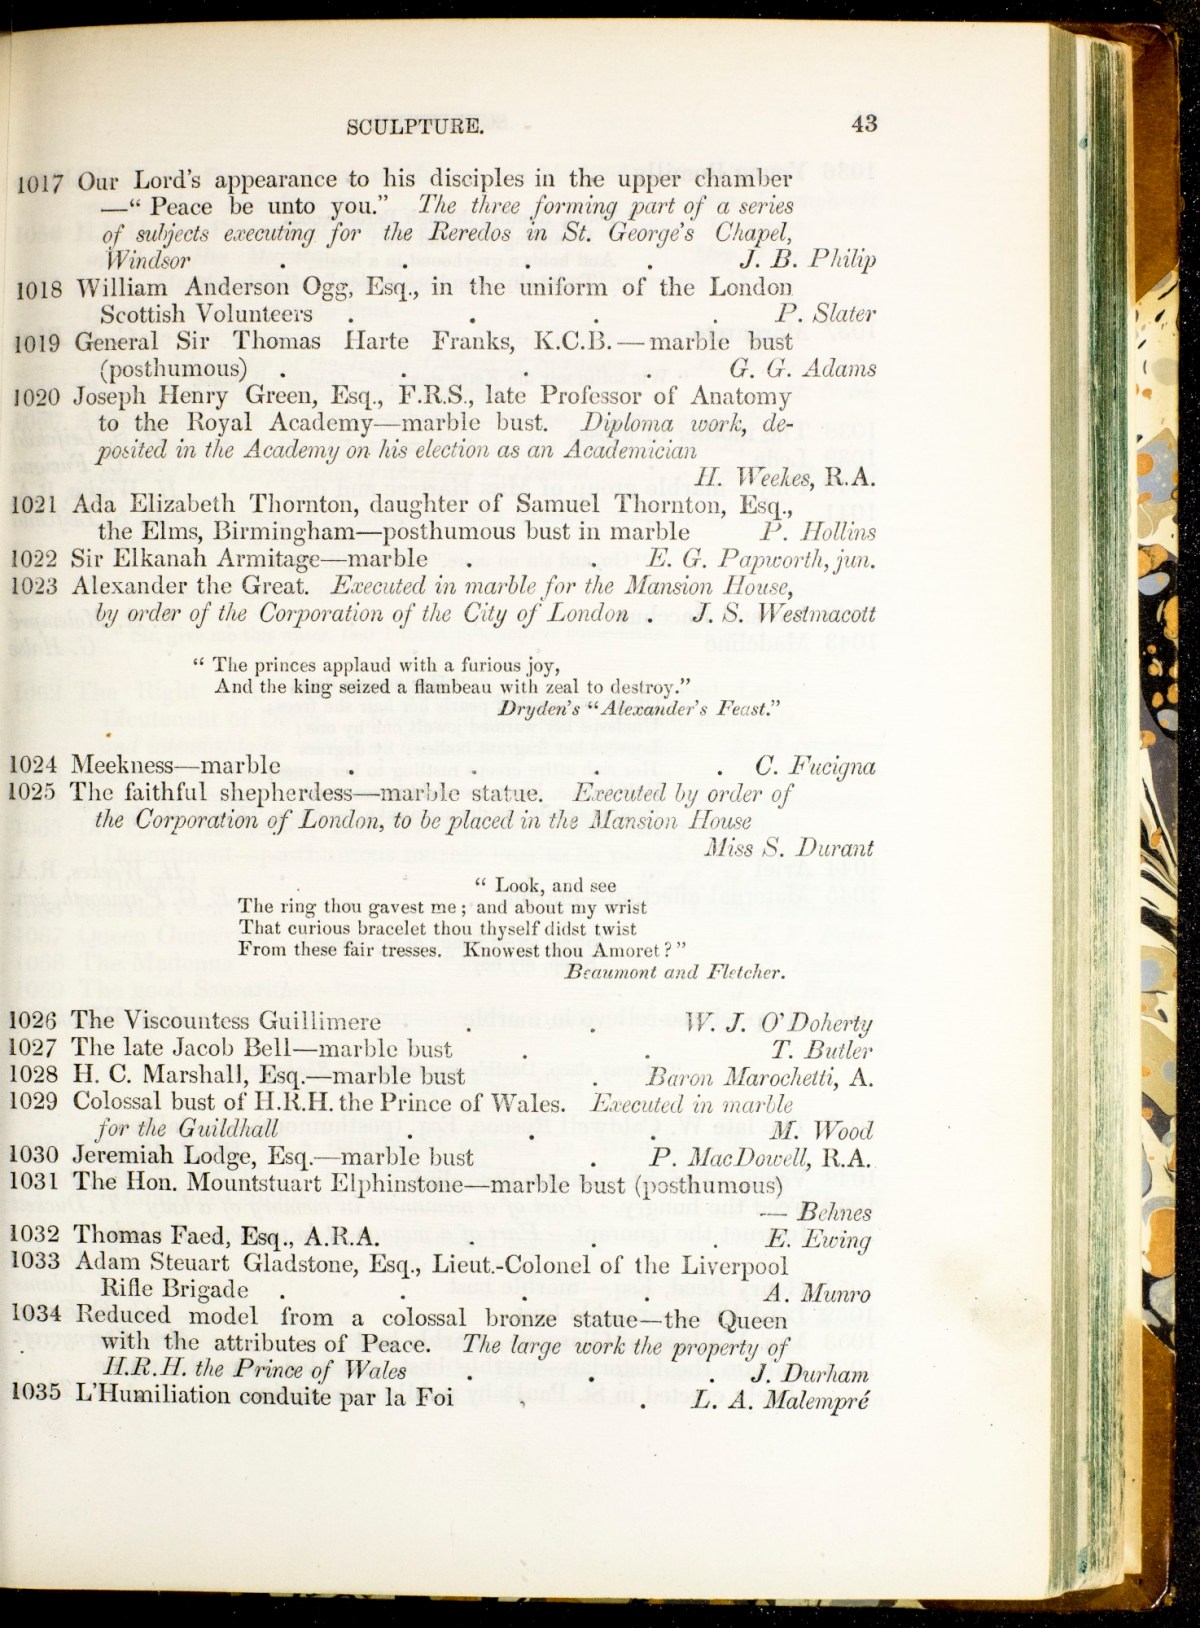 SCULPTURE. 43
1017 Our Lord's appearance to his disciples in the upper chamber
—“ Peace be unto you.” The three forming part of a series
of subjects executing for the Reredos in St. George's Chapel,
Windsor . . . . J. B. Philip
1018 William Anderson Ogg, Esq., in the uniform of the London
Scottish Volunteers . . . . P. Slater
1019 General Sir Thomas Harte Franks, K.C.B.—marble bust
(posthumous) . . . . G. G. Adams
1020 Joseph Henry Green, Esq., F.R.S., late Professor of Anatomy
to the Royal Academy—marble bust. Diploma work, de-
posited in the Academy on his election as an Academician
H. Weekes, R.A.
1021 Ada Elizabeth Thornton, daughter of Samuel Thornton, Esq.,
the Elms, Birmingham—posthumous bust in marble P. Hollins
1022 Sir Elkanah Armitage—marble . . E. G. Papworth, jun.
1023 Alexander the Great. Executed in marble for the Mansion House,
by order of the Corporation of the City of London . J. S. Westmacott
“ The princes applaud with a furious joy,
And the king seized a flambeau with zeal to destroy.”
Dryden's “Alexander's Feast.”
1024 Meekness—marble . . . . C. Fucigna
1025 The faithful shepherdess—marble statue. Executed by order of
the Corporation of London, to be placed in the Mansion House
Miss S. Durant
“ Look, and see
The ring thou gavest me ; and about my wrist
That curious bracelet thou thyself didst twist
From these fair tresses. Knowest thou Amoret ? ”
Beaumont and Fletcher.
1026 The Viscountess Guillimere . . W. J. O'Doherty
1027 The late Jacob Bell—marble bust . . T. Butler
1028 H. C. Marshall, Esq.—marble bust . Baron Marochetti, A.
1029 Colossal bust of H.R.H. the Prince of Wales. Executed in marble
for the Guildhall . . . M. Wood
1030 Jeremiah Lodge, Esq.—marble bust . P. MacDowell, R.A.
1031 The Hon. Mountstuart Elphinstone—marble bust (posthumous)
— Behnes
1032 Thomas Faed, Esq., A.R.A. . . . E. Ewing
1033 Adam Steuart Gladstone, Esq., Lieut.-Colonel of the Liverpool
Rifle Brigade . . . . A. Munro
1034 Reduced model from a colossal bronze statue—the Queen
with the attributes of Peace. The large work the property of
H.R.H. the Prince of Wales . . . J. Durham
1035 L'Humiliation conduite par la Foi . . L. A. Malempré